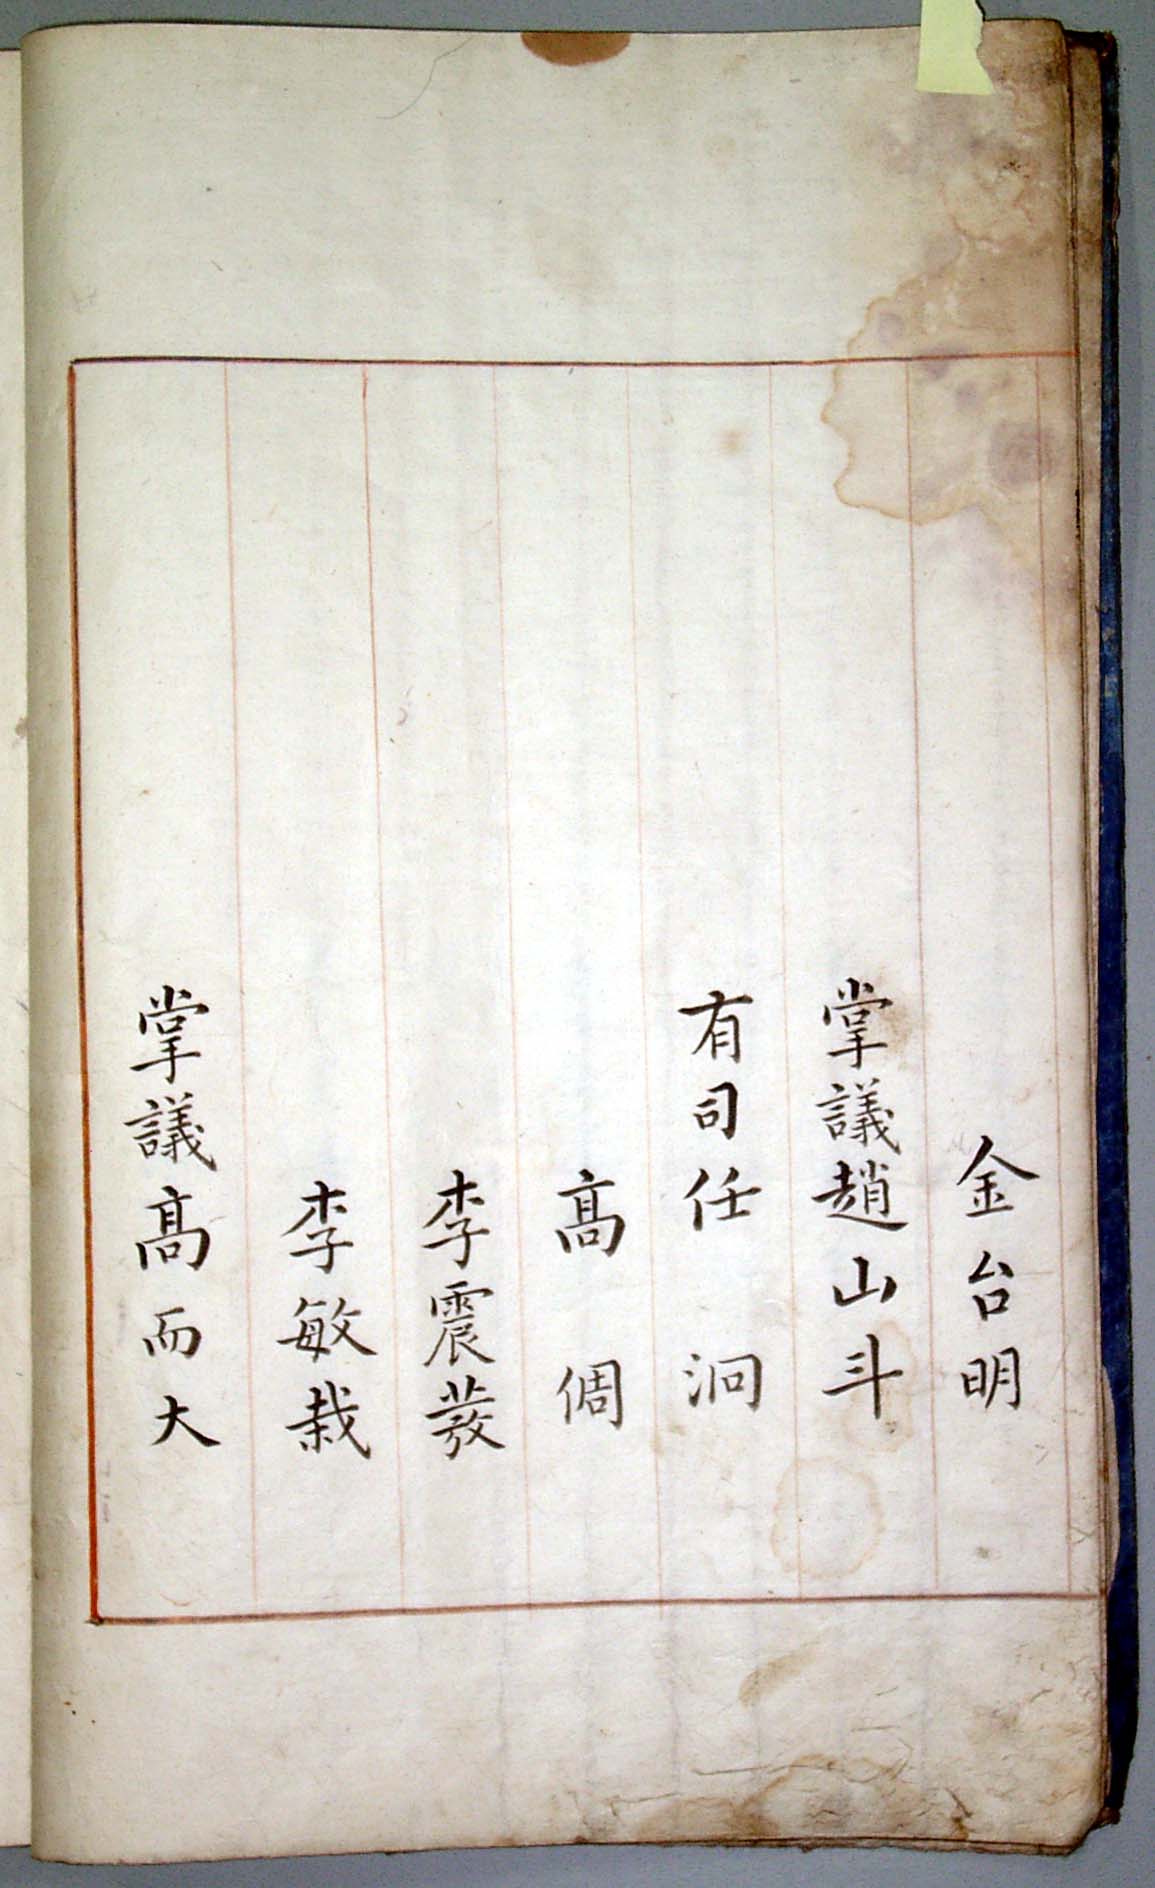 金台明
掌議趙山斗
有司任泂
髙倜
李震蕟
李敏栽
掌議髙而大